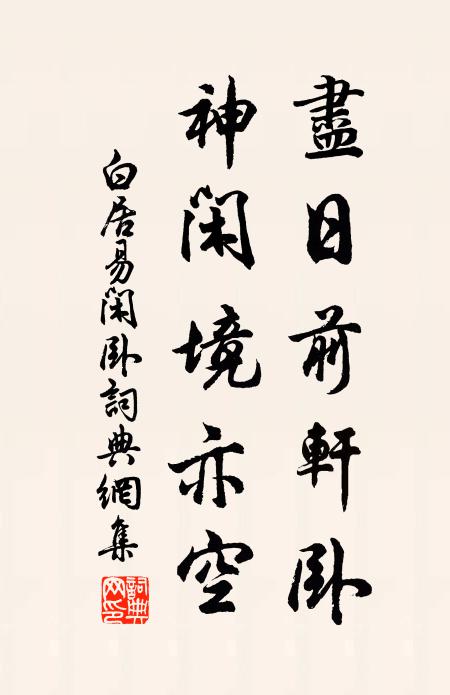 盡日前軒卧
神閑境亦空
白居易閑卧詞典網集
詞典网印